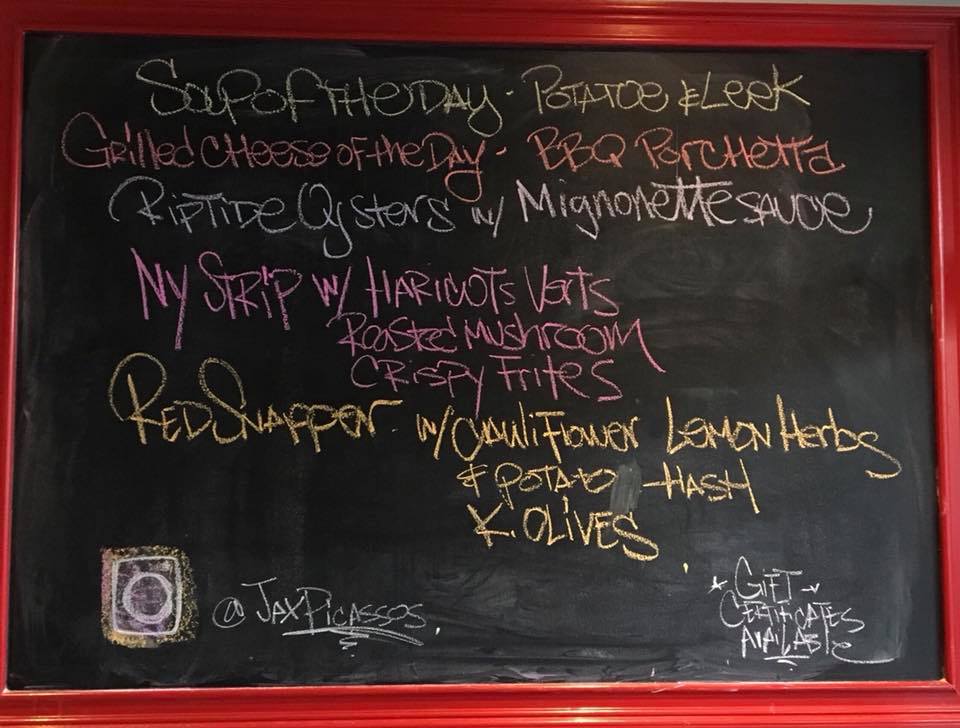 Soup of the Day - Potatoe & Leek
Grilled Cheese of the Day - BBQ Porchetta
Riptide Oysters w/ Mignonette sauce
NY Strip w/ Haricots Verts
Roasted Mushroom
Crispy Frites
Red Snapper w/ Cauliflower Lemon Herbs
& Potato - Hash
K. Olives
@JaxPicassos
* Gift
Certificates
Available